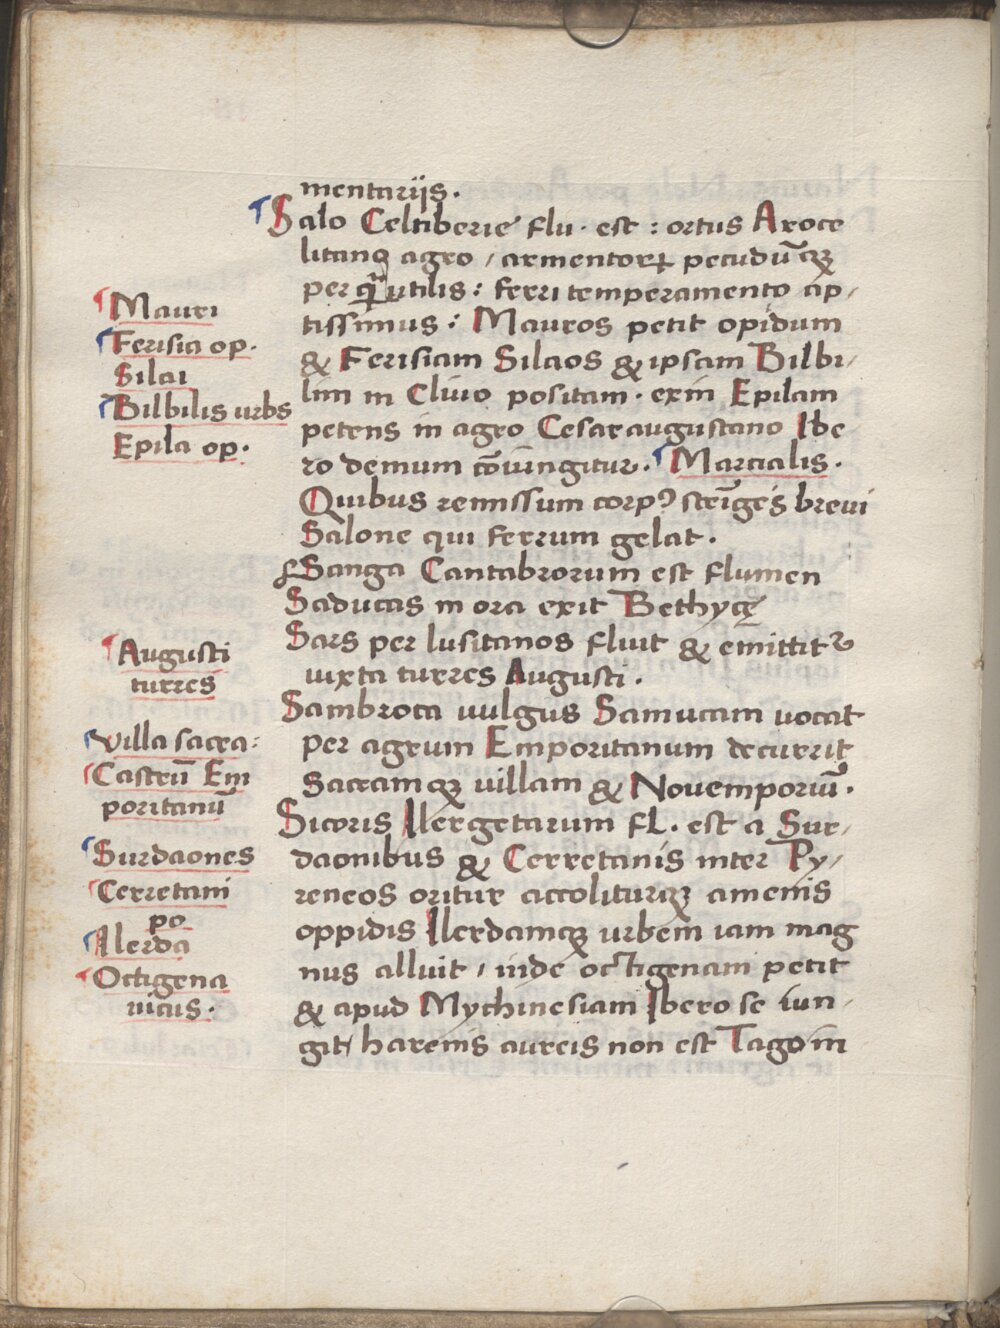 mentarijs.
Salo Celtiberie flu. est : ortus Aroce
litano agro / armentorꝝ pecudūqꝫ
per quā utilis : ferri temperamento ap/
tissimus : Mauros petit opidum
& Ferisiam Silaos & ipsam Bilbi/
lim in Cliuo positam. exin Epilam
petens in agro Cesaraugustano Ibe
ro demum cōiungitur. Martialis.
Quibus remissum corpꝰ strīges breui
Salone qui ferrum gelat.
Sanga Cantabrorum est flumen
Saducas in ora exit Bethycę
Sars per lusitanos fluit & emittit᷑
iuxta turres Augusti.
Sambroca uulgus Samucam uocat
per agrum Emporitanum decurrit
Sacramqꝫ uillam & Nouemporiū.
Sicoris Ilergetarum fl. est a Sur/
daonibus & Cerretanis inter Py/
reneos oritur accoliturqꝫ amenis
oppidis Ilerdamqꝫ urbem iam mag
nus alluit / inde octigenam petit
& apud Mychinesiam Ibero se iun/
git / harenis aureis non est Tago in
Mauri
Ferisia op.
Silai
Bilbilis urbs
Epila op.
Augusti
turres
Villa sacra :
Castrū Em
poritanū
Surdaones
Cerretani
po
Ilerda
Octigena
uicus.